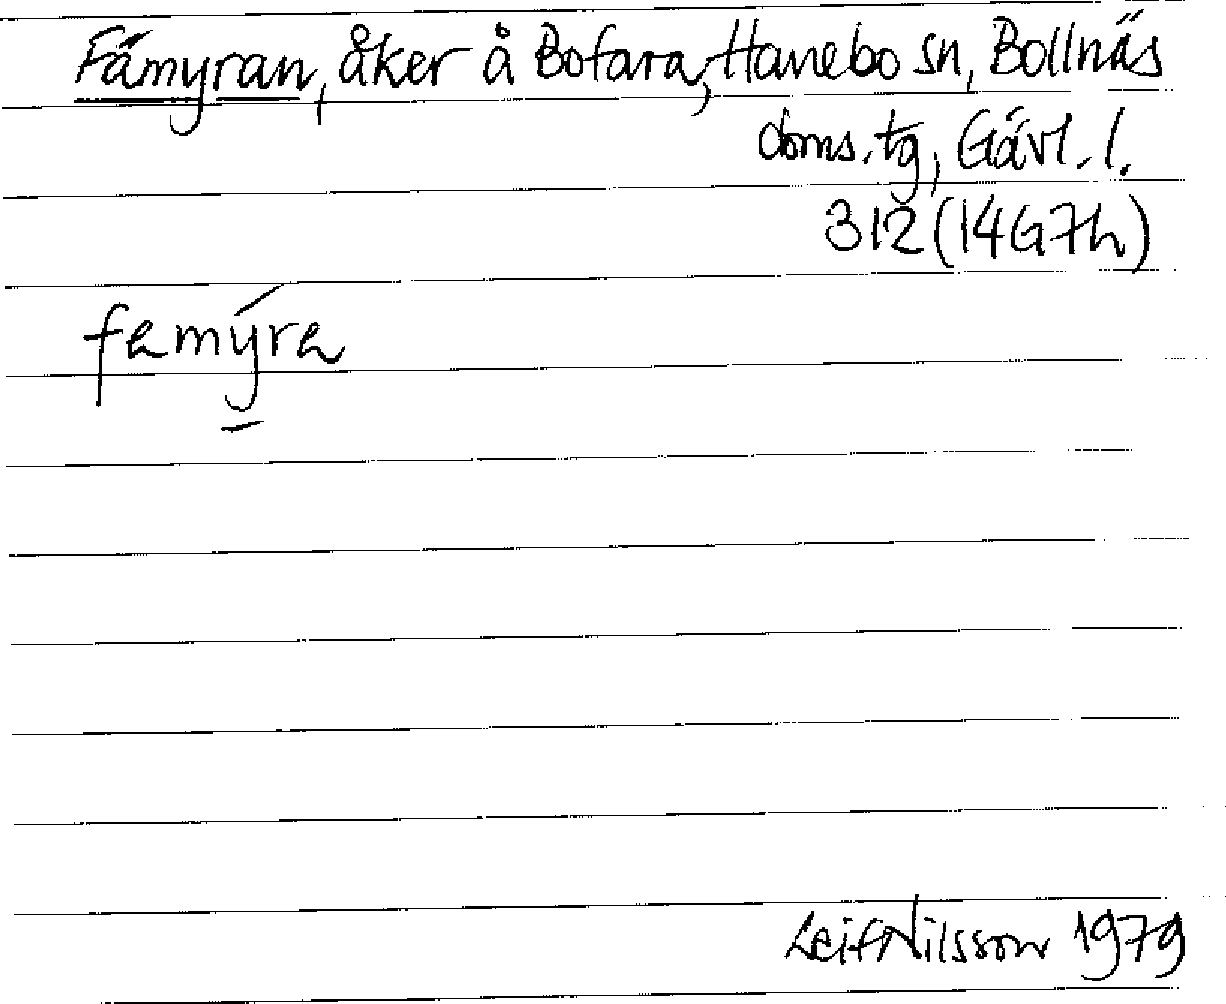 Fämyran, åker å Bofara, Hanebo sn, Bollnäs
doms.tg, Gävl. l.
312 (14G7h)
Leif Nilsson 1979